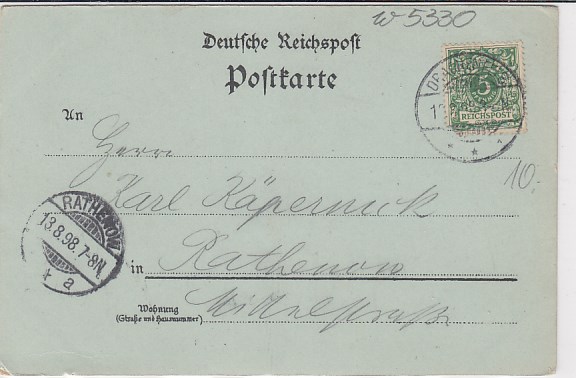 w 5330
Deutsche Reichspost
Postkarte
5
REICHSPOST
An
Herrn
10.-
Karl Käpernick
RATHENOW
13.8.98.7-8N
a
in Rathenow
Wohnung
(Straße und Hausnummer)
Mittelstraße